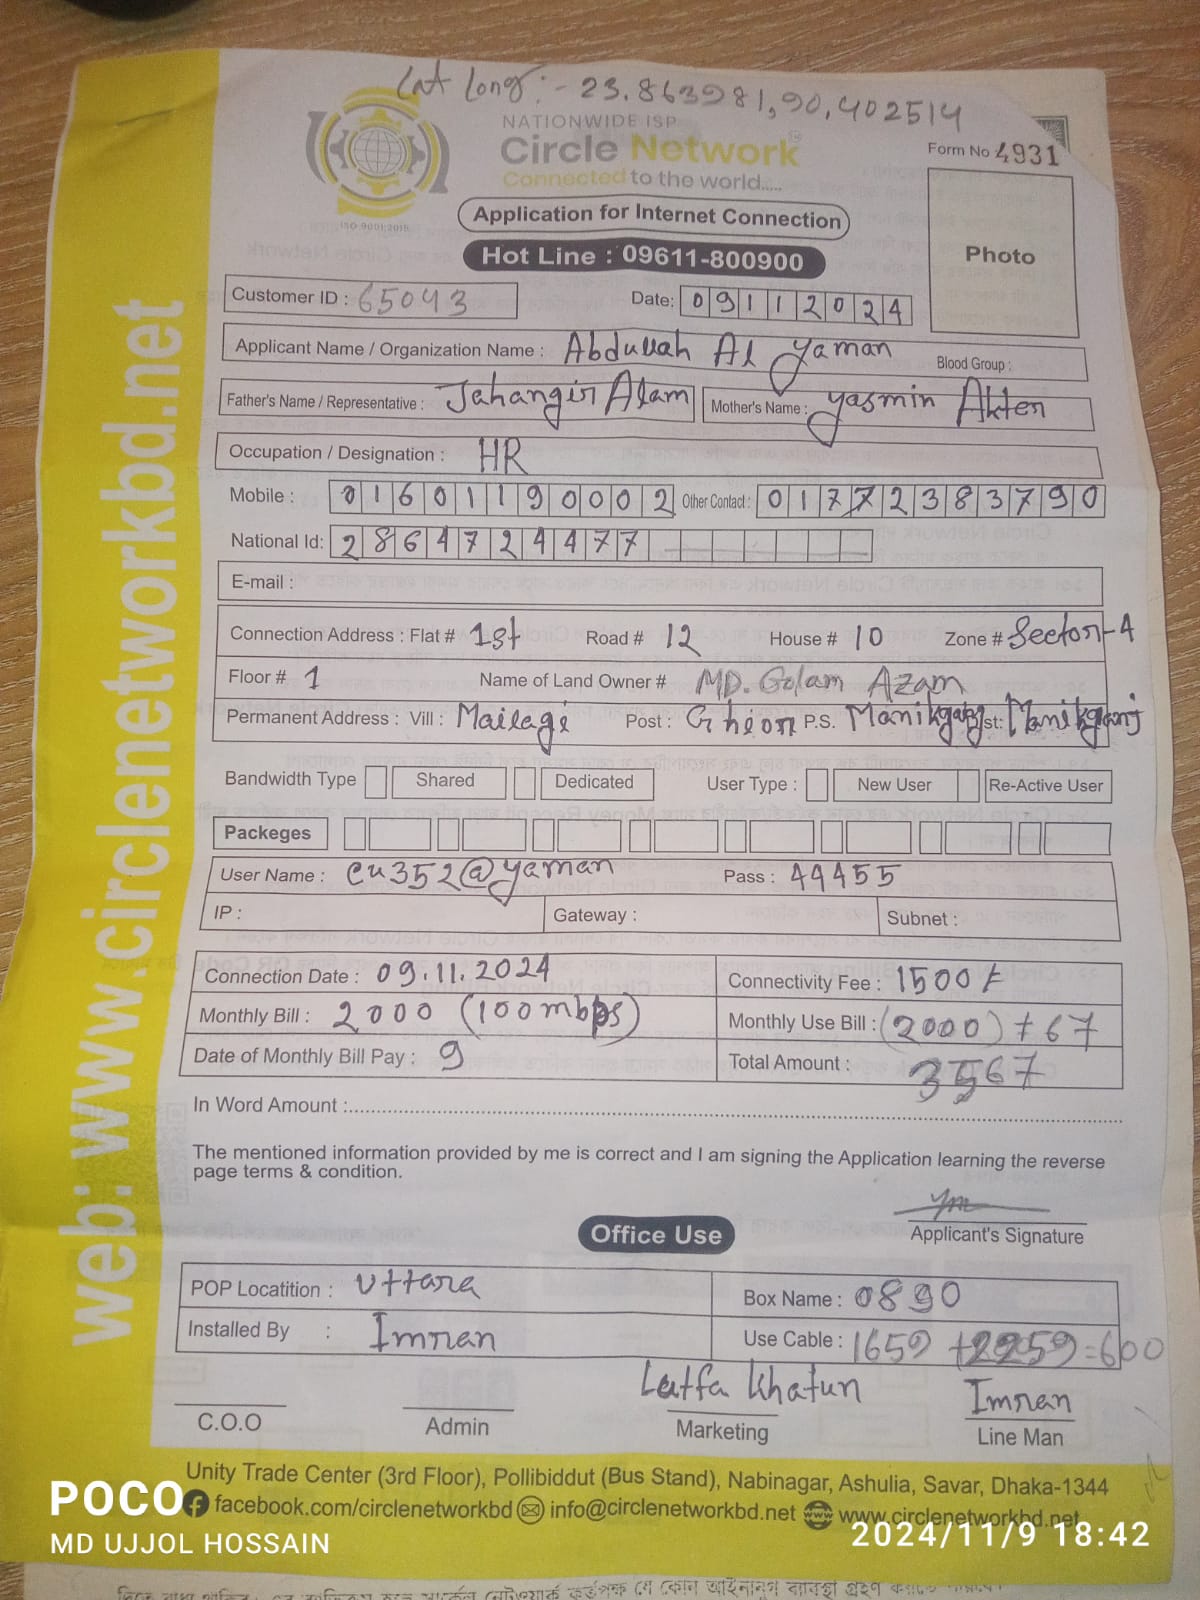 Lat Long:- 23.863981,90,402514
NATIONWIDE ISP
Circle Network
Connected to the world.....
ISO 9001:2015
Form No 4931
Application for Internet Connection
Photo
Hot Line : 09611-800900
Customer ID : 65043 Date: 09112024
Applicant Name / Organization Name : Abdullah Al Yaman Blood Group :
Father's Name / Representative : Jahangir Alam Mother's Name : Yasmin Akter
Occupation / Designation : HR
Mobile : 01601190002 Other Contact : 01772383790
National Id: 2864724477
E-mail :
Connection Address : Flat # 1st Road # 12 House # 10 Zone # Sector-4
Floor # 1 Name of Land Owner # MD. Golam Azam
Permanent Address : Vill : Mailagi Post : Gheor P.S. Manikganj Dist: Manikganj
Bandwidth Type Shared Dedicated User Type : New User Re-Active User
Packeges
User Name : cn352@yaman Pass : 44455
IP : Gateway : Subnet :
Connection Date : 09.11.2024 Connectivity Fee : 1500
Monthly Bill : 2000 (100mbps) Monthly Use Bill : (2000) + 67
Date of Monthly Bill Pay : 9 Total Amount : 3567
In Word Amount :
The mentioned information provided by me is correct and I am signing the Application learning the reverse
page terms & condition.
Applicant's Signature
Office Use
POP Locatition : Uttara Box Name : 0890
Installed By : Imran Use Cable : 1659 =600
Latfa Khatun Imran
C.O.O Admin Marketing Line Man
Unity Trade Center (3rd Floor), Pollibiddut (Bus Stand), Nabinagar, Ashulia, Savar, Dhaka-1344
facebook.com/circlenetworkbd info@circlenetworkbd.net www.circlenetworkbd.net
web: www.circlenetworkbd.net
POCO
MD UJJOL HOSSAIN
2024/11/9 18:42